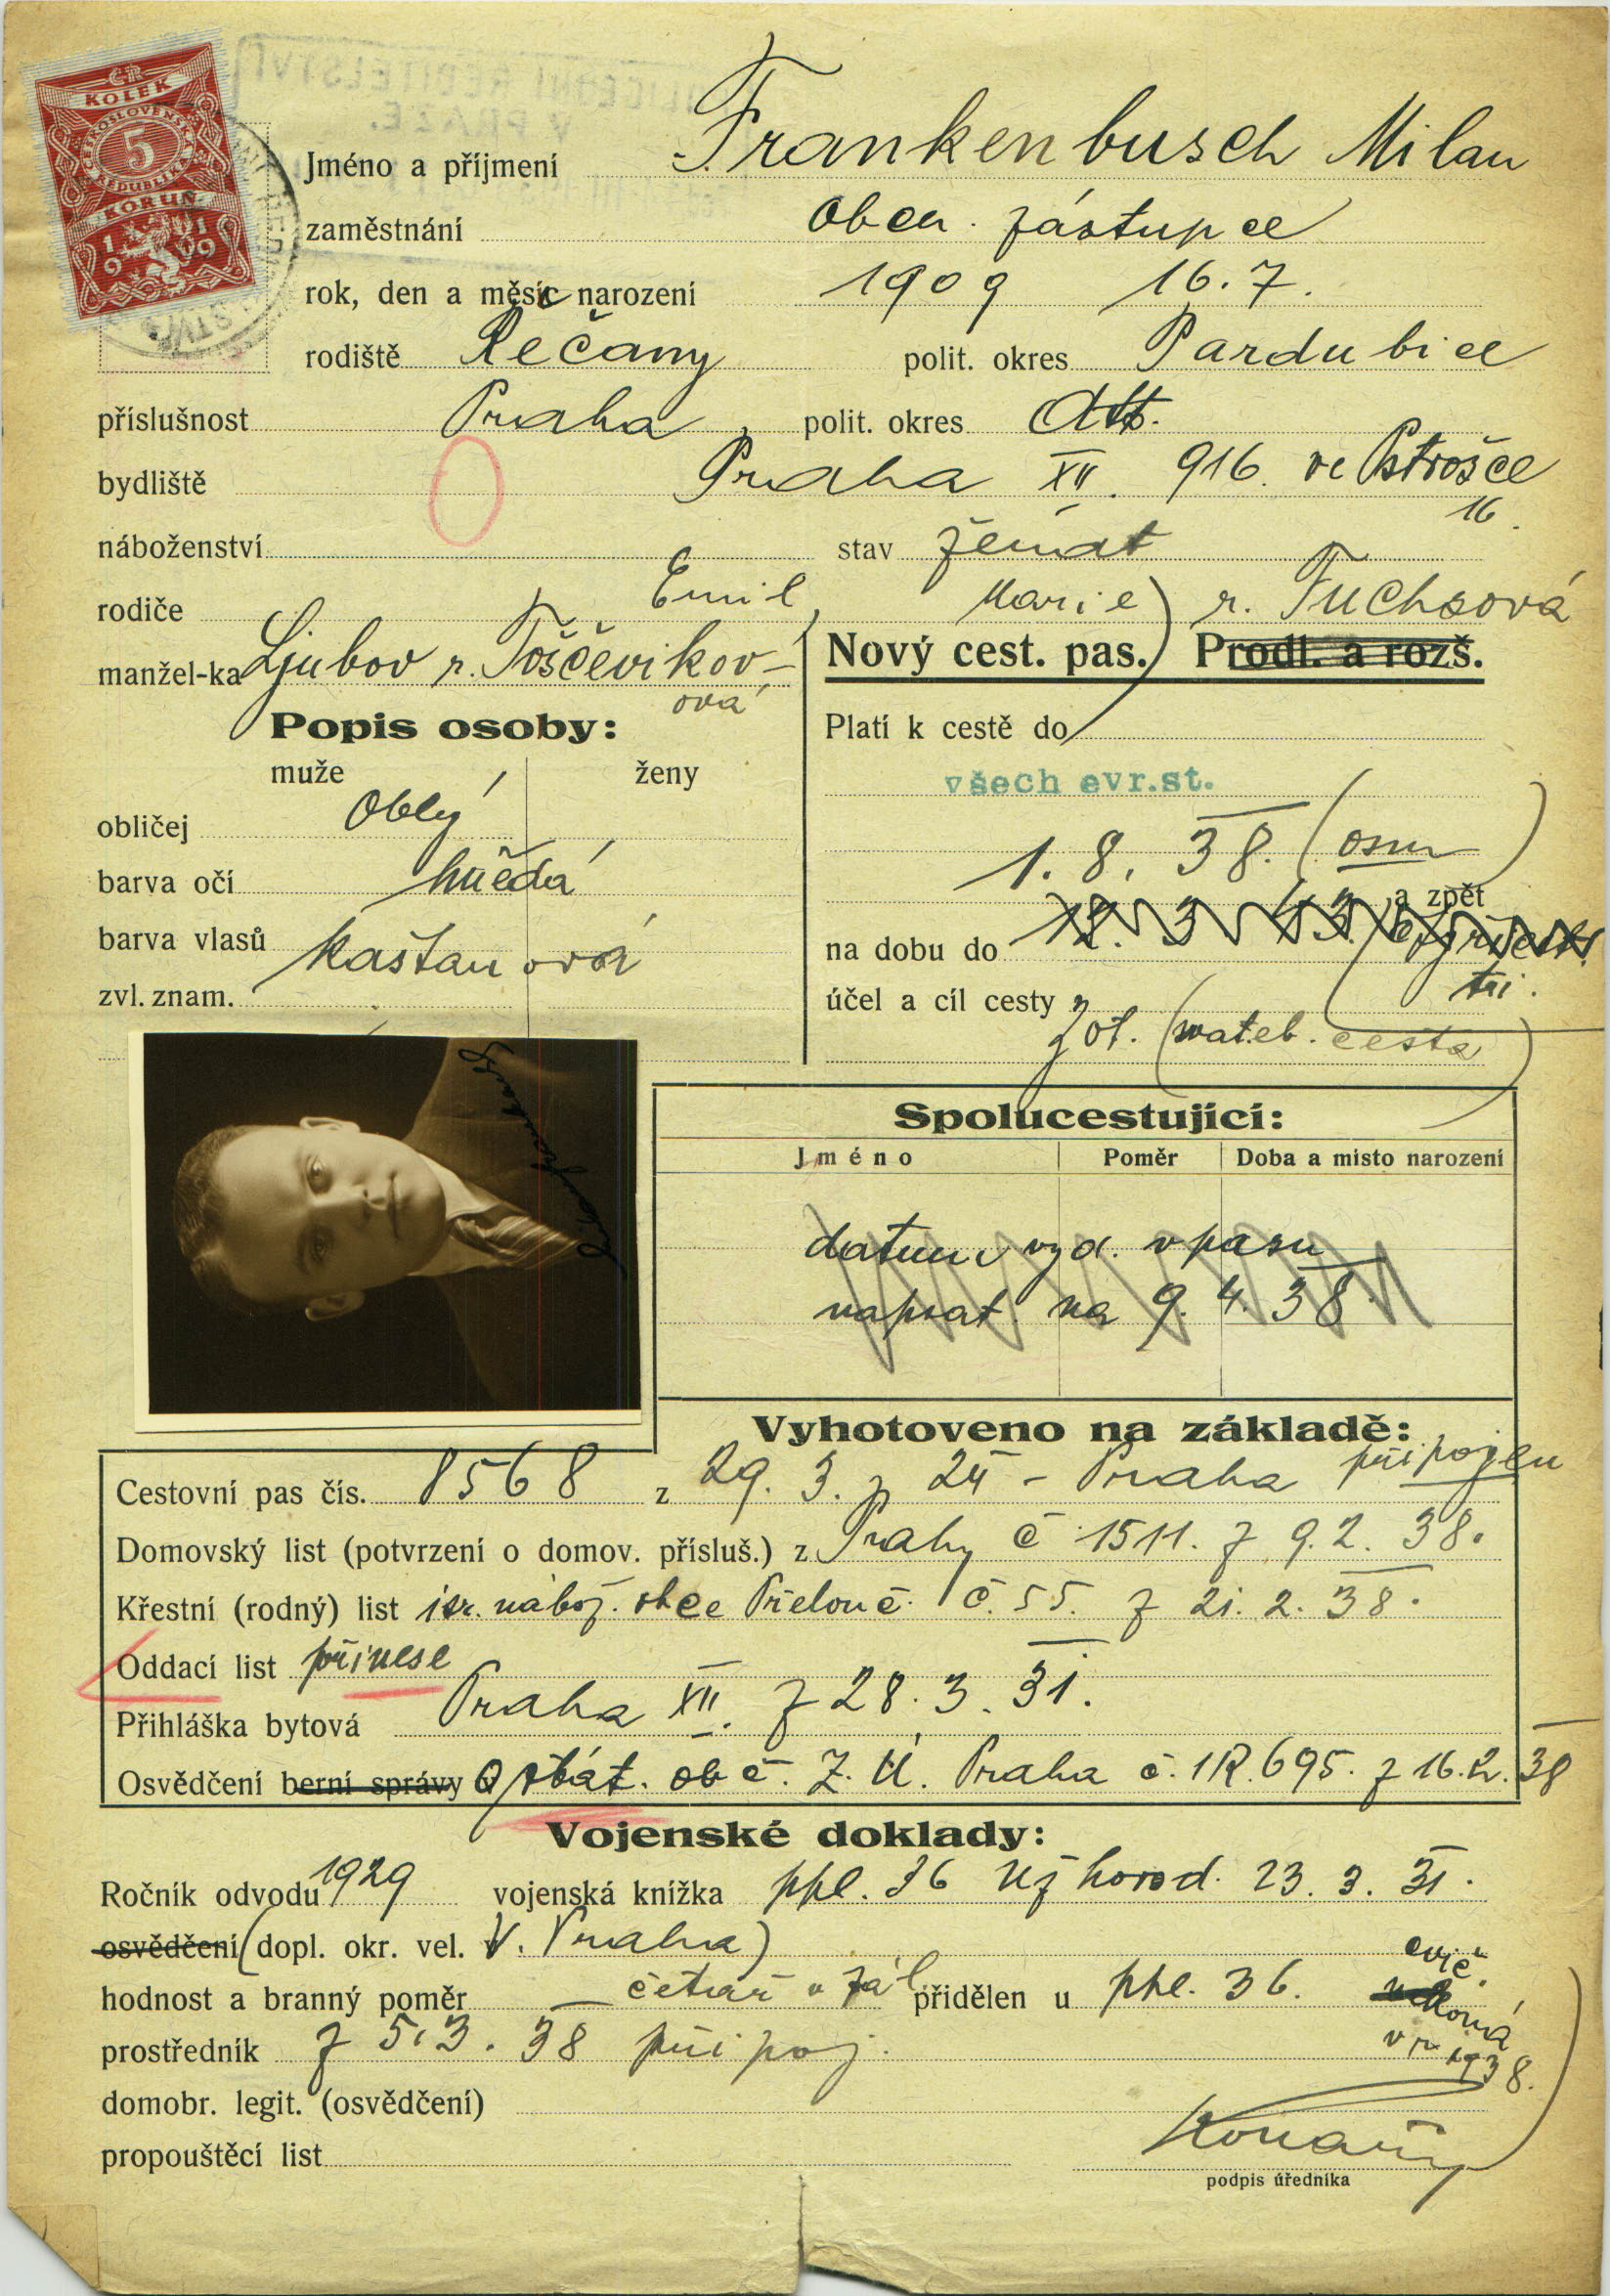 ČR
KOLEK
ČESKOSLOVENSKÁ
5
REPUBLIKA
KORUN
1919
POLICEJNÍ ŘEDITELSTVÍ
V PRAZE.
Jméno a příjmení Frankenbusch Milan
zaměstnání obch. zástupce
rok, den a měsíc narození 1909 16.7.
rodiště Řečany polit. okres Pardubice
příslušnost Praha, polit. okres dtto.
bydliště Praha XII. 916. ve Pštrosce
16.
náboženství 0 stav ženat
rodiče Emil, Marie r. Fuchsová
manžel-ka Ljubov r. Toščevikov-
ová
Nový cest. pas. Prodl. a rozš.
Popis osoby:
muže ženy
obličej oblý
barva očí hnědá
barva vlasů kaštanová
zvl. znam.
Platí k cestě do
všech evr.st.
1. 8. 38. (osm)
a zpět
na dobu do 12. 3. 43.
tři.
účel a cíl cesty zot. (svateb. cesta)
Spolucestující:
Jméno Poměr Doba a místo narození
datum vyd. v pasu
napsat na 9. 4. 38.
Vyhotoveno na základě:
Cestovní pas čís. 8568 z 29. 3. Praha připojen
Domovský list (potvrzení o domov. přísluš.) z Prahy č 1511. z 9.2. 38.
Křestní (rodný) list isr. nábož. obce Přelouč. č. 55. z 21. 2. 38.
Oddací list přinese
Přihláška bytová Praha XII. z 28. 3. 31.
Osvědčení berní správy o stát. obč. Z. Ú. Praha č. 1R.695. z 16.2.38
Vojenské doklady:
Ročník odvodu 1929 vojenská knížka ppl. 36 Užhorod. 23. 3. 31.
osvědčení (dopl. okr. vel. V. Praha)
hodnost a branný poměr četař v zál. přidělen u ppl. 36. cvič.
koná
v r. 1938.
prostředník z 5.3. 38 připoj.
domobr. legit. (osvědčení)
propouštěcí list
podpis úředníka